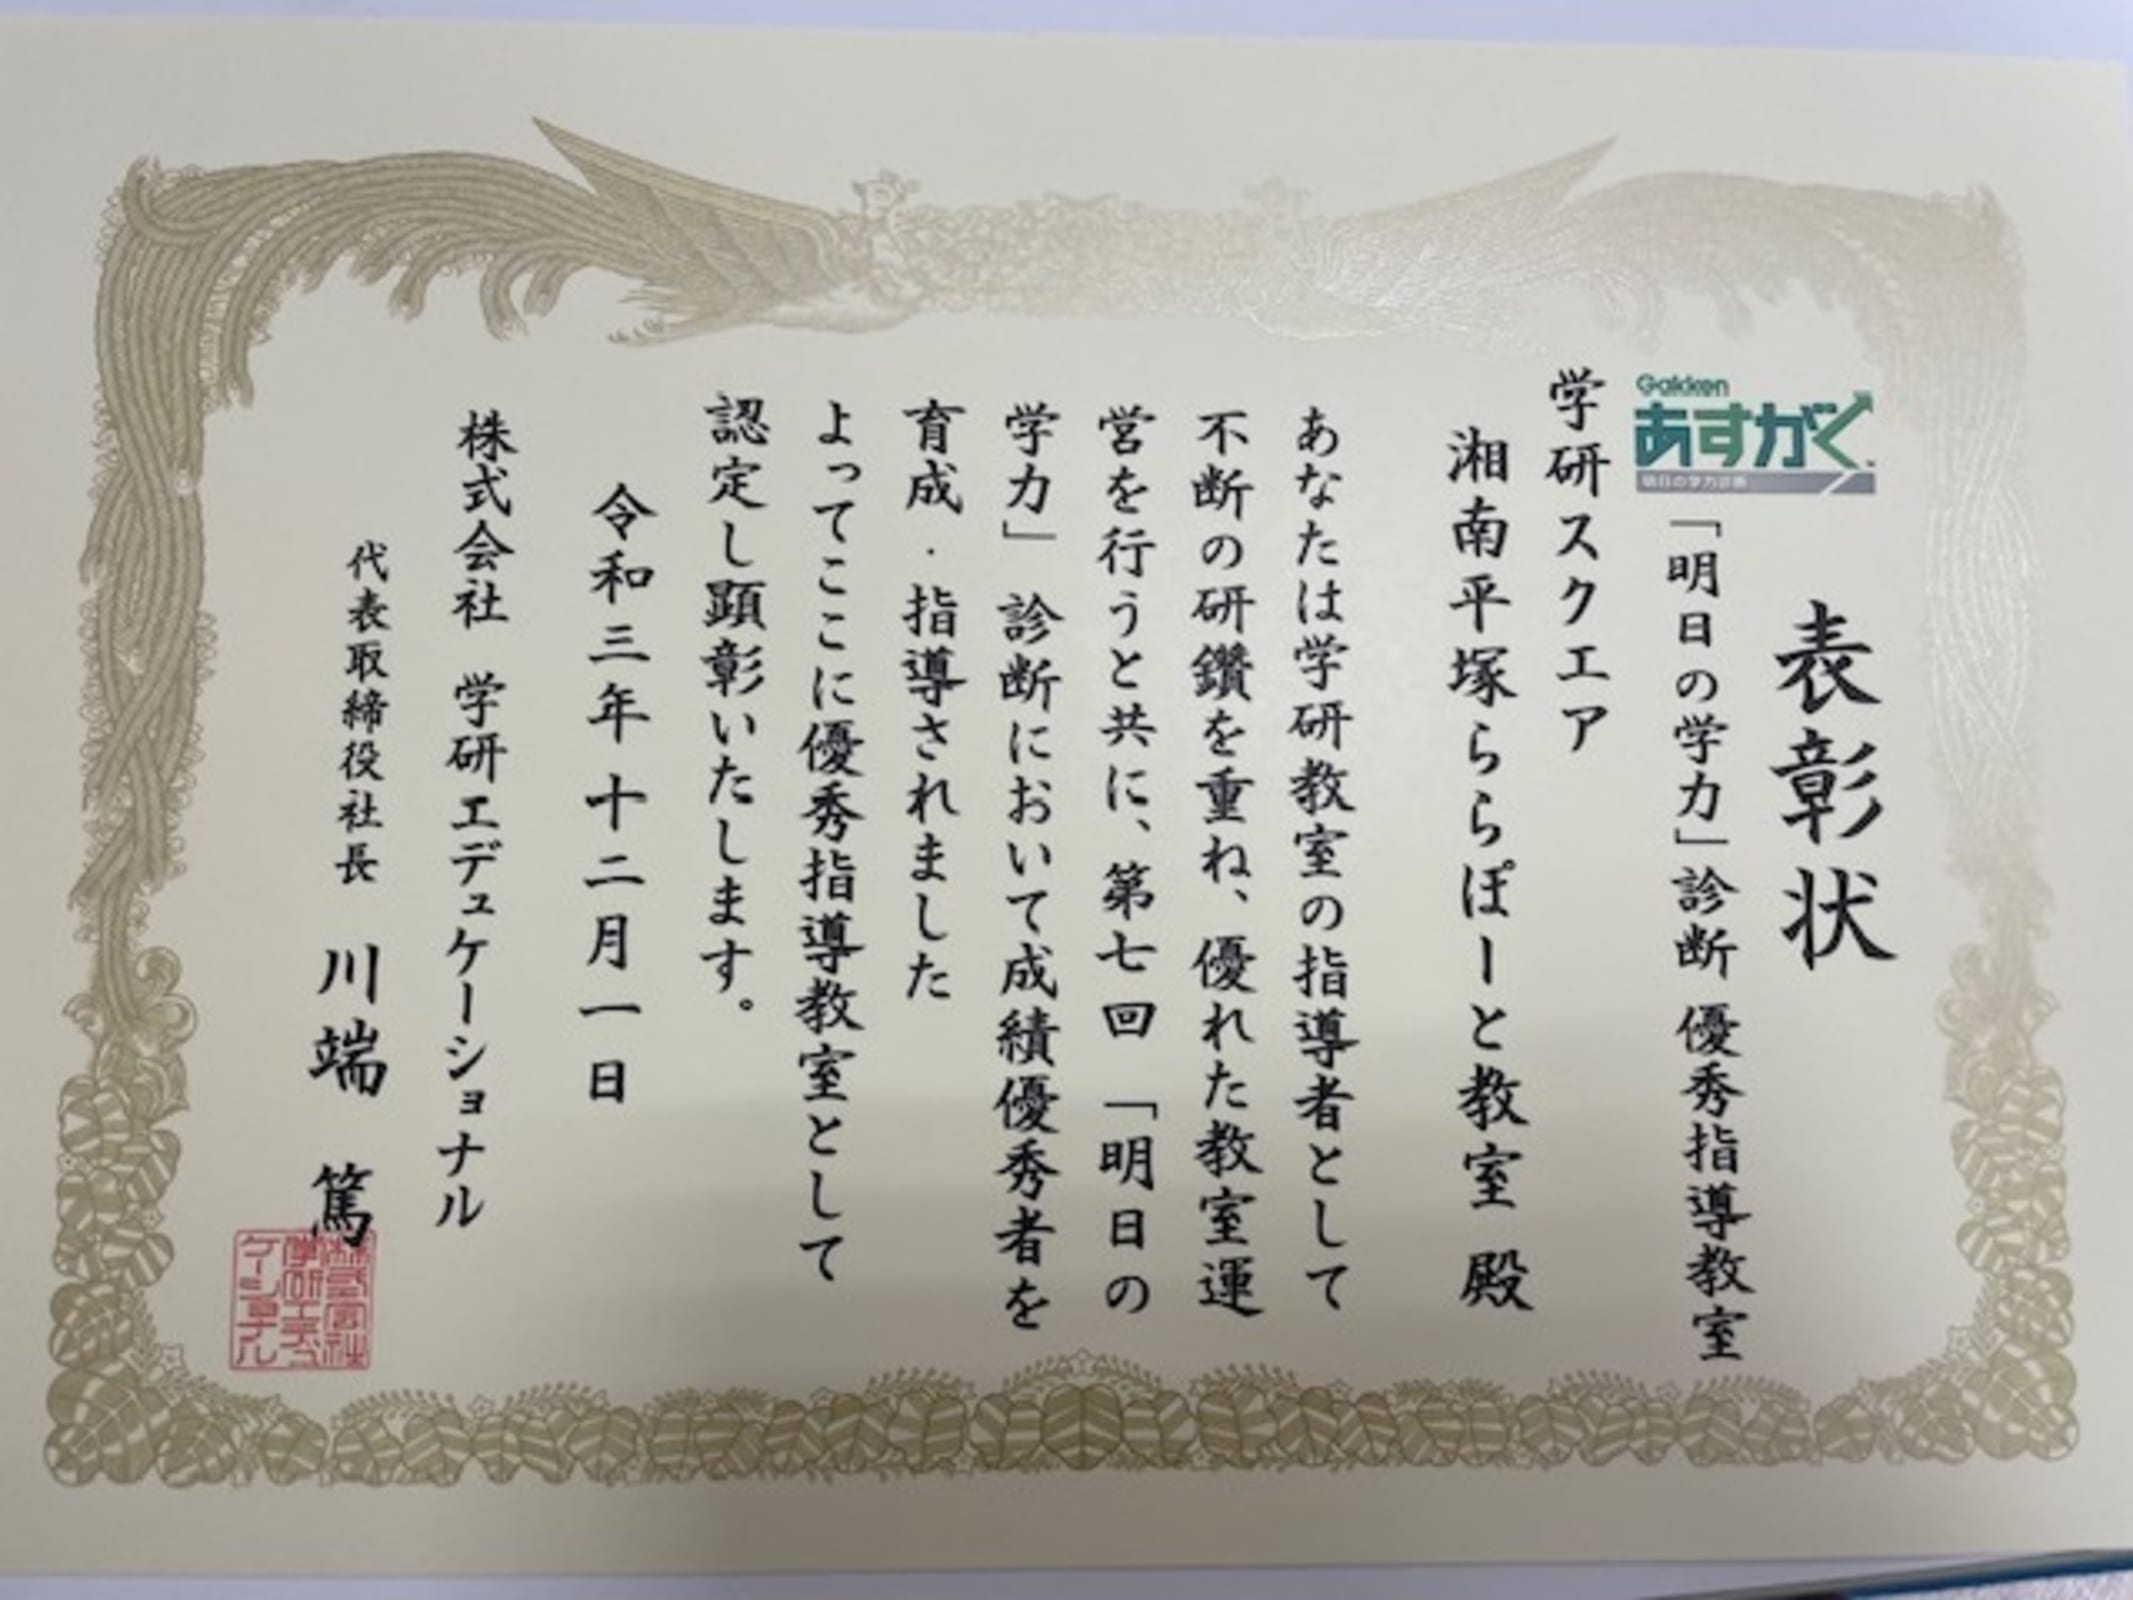 表彰状
Gakken
あすがく
明日の学力診断
「明日の学力」診断 優秀指導教室
学研スクエア
湘南平塚ららぽーと教室 殿
あなたは学研教室の指導者として
不断の研鑽を重ね、優れた教室運
営を行うと共に、第七回「明日の
学力」診断において成績優秀者を
育成・指導されました
よってここに優秀指導教室として
認定し顕彰いたします。
令和三年十二月一日
株式会社 学研エデュケーショナル
代表取締役社長 川端 篤
株式会社
学研エデュ
ケーショナル